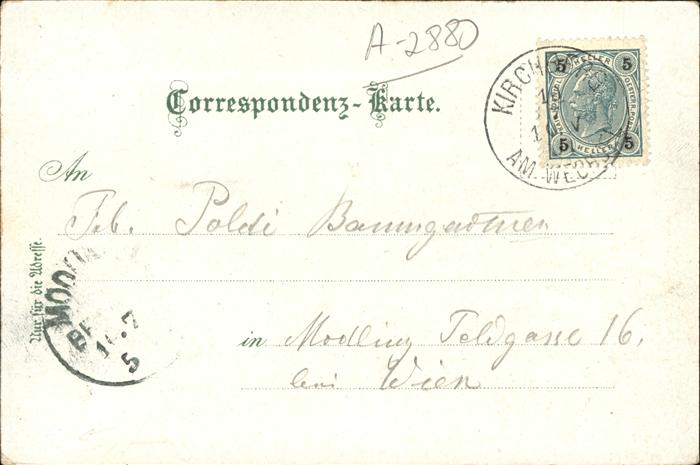 A-2880
5 HELLER 5
5 HELLER 5
KIRCH
AM WECH
Correspondenz-Karte.
An
Frl. Poldi Baumgartner
Nur für die Adresse.
in Modling Feldgasse 16.
bei Wien
MÖD
5